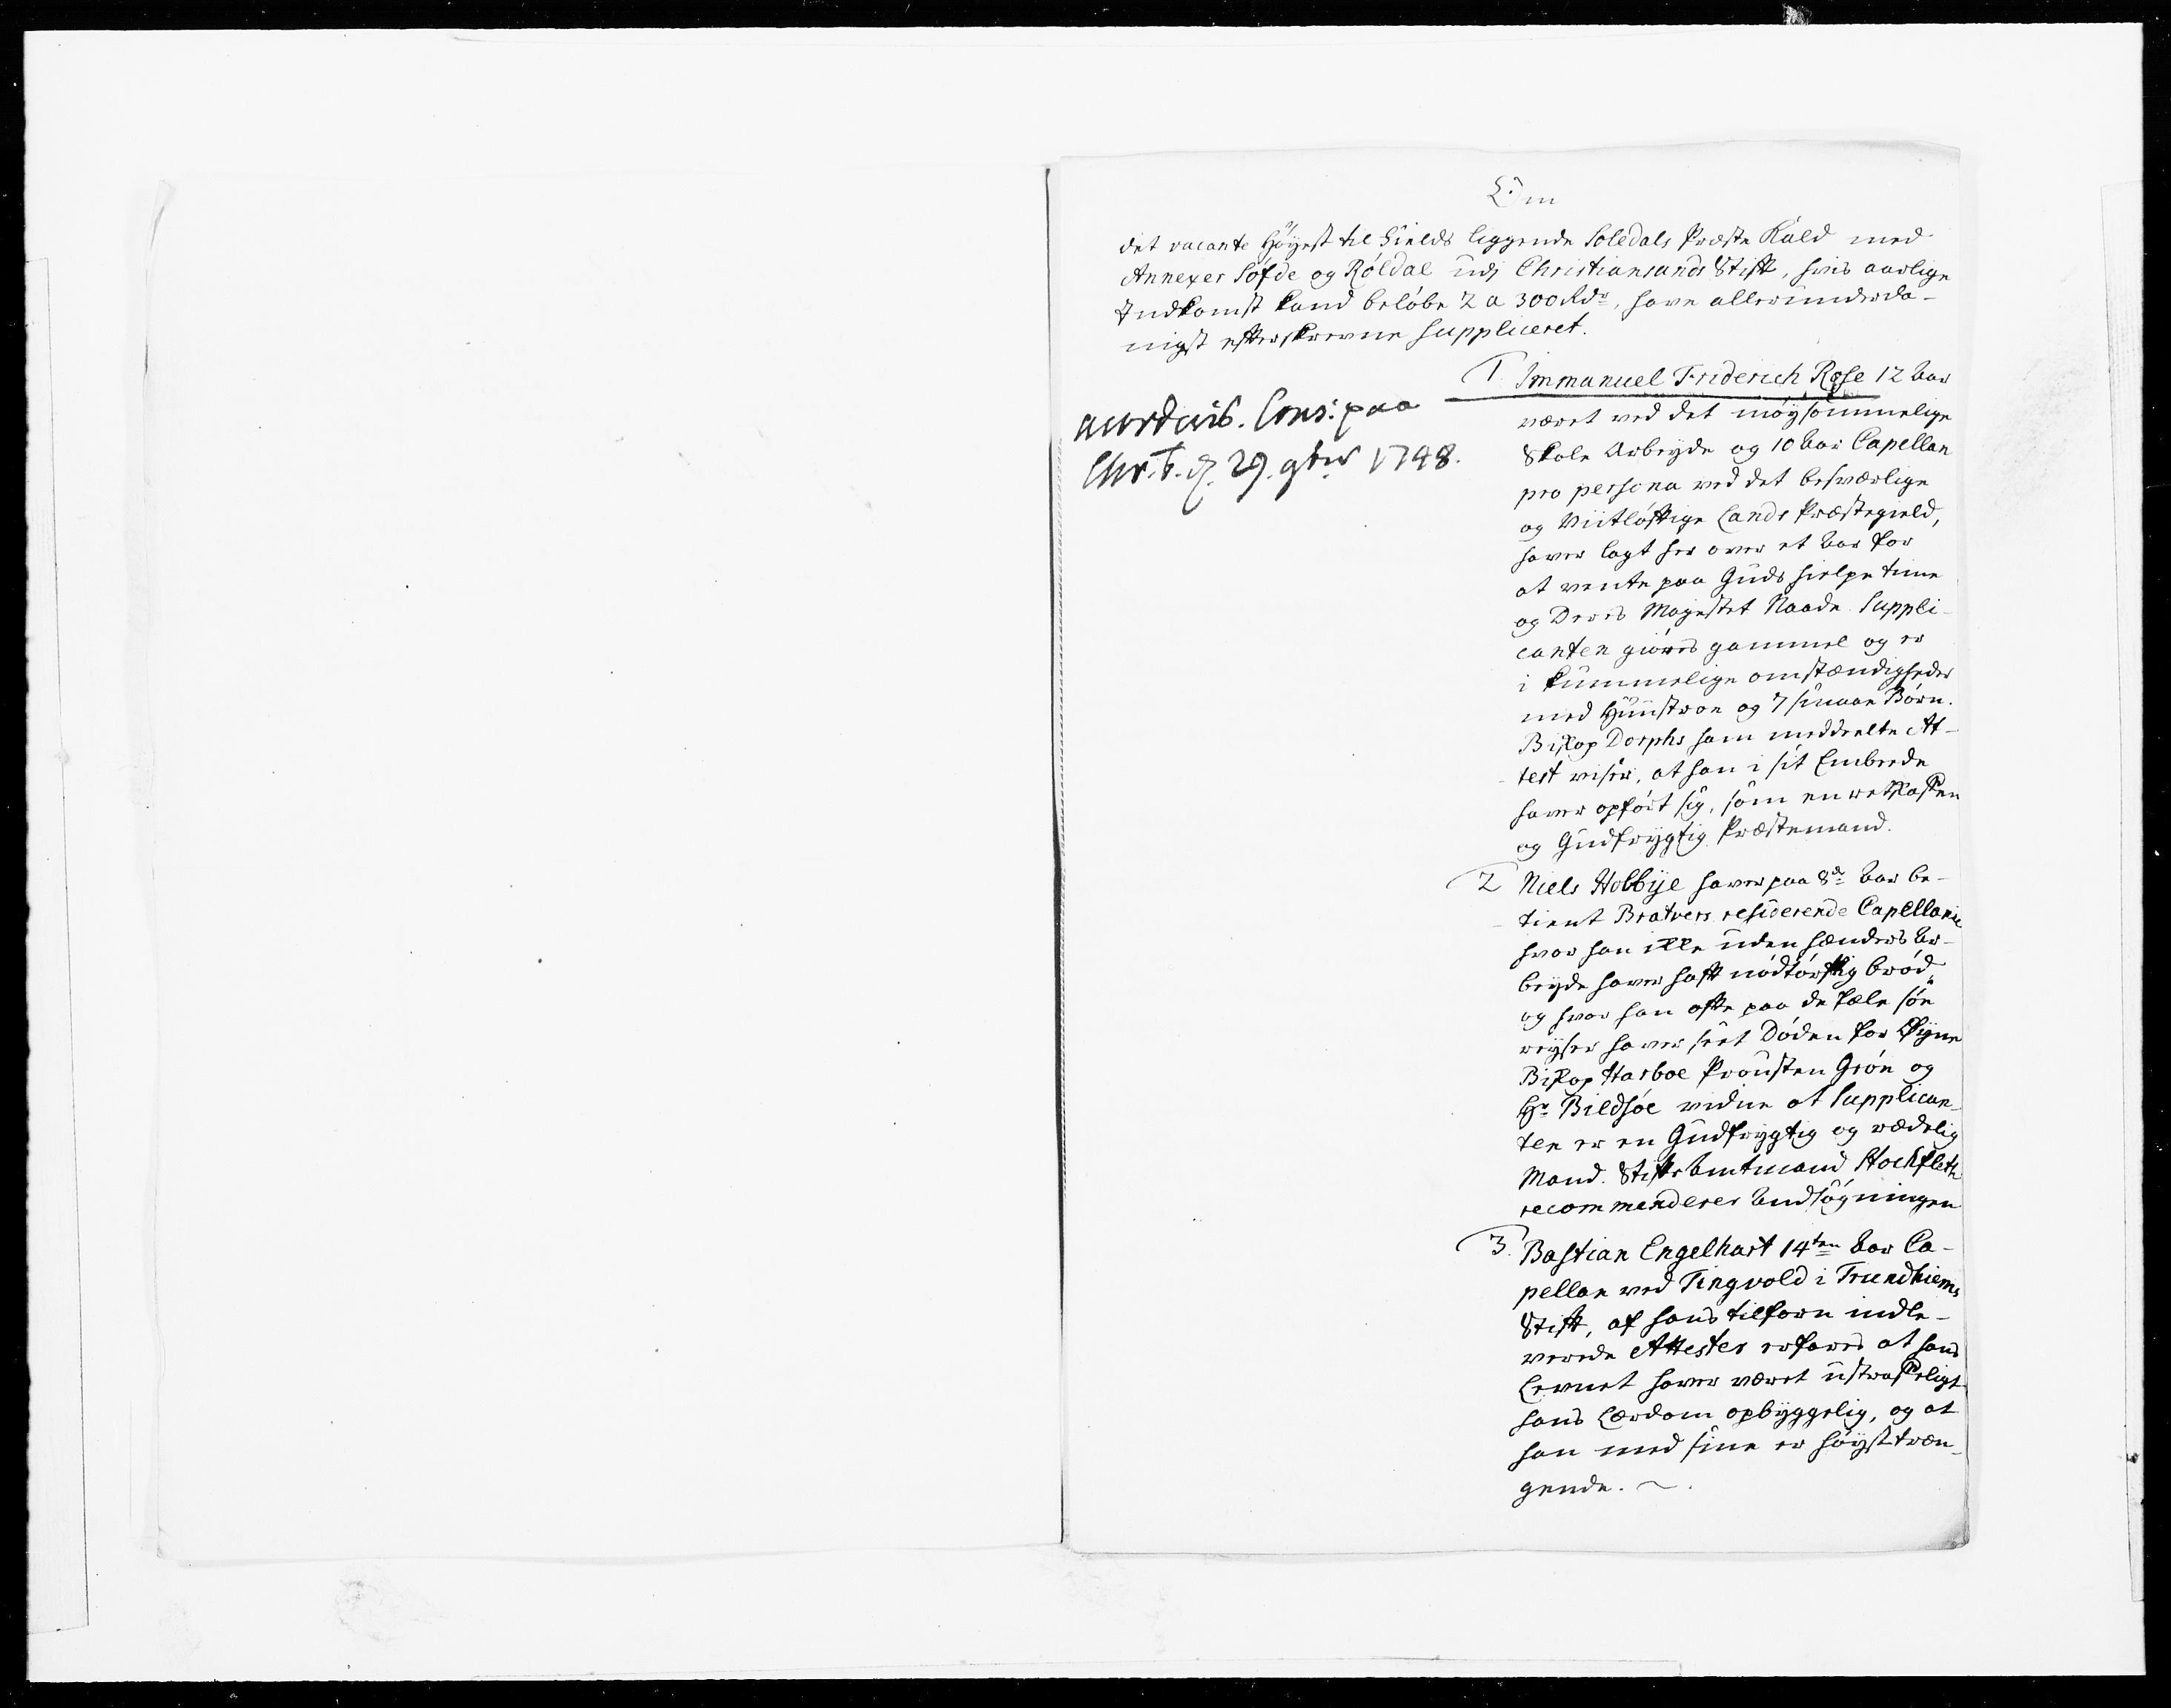 Om
det vacante Höyest til Fields liggende Soledals Præste Kald med
Annexer Söfde og Röldal udj Christiansands Stift, hvis aarlige
Indkomst kand belöbe 2 a 300 Rdr, have allerunderda-
nigst efterskrevne suppliceret.
1 Immanuel Friderich Rose 12 Aar
været ved det möysommelige
Skole Arbeyde og 10 Aar Capellan
pro persona ved det besværlige
og Viitlöftige Lands Præstegield,
haver lagt her over et Aar for
at vente paa Guds hielpe time
og Deres Mayestet Naade. Suppli-
canten giöres gammel og er
i kummelige omstændigheder
med Huustroe og 7 smaae Börn.
Biskop Dorphs ham meddeelte At-
test viser, at han i sit Embede
haver opfört sig, som en retskaffen
og Gudfrygtig Præstemand.
accorderis. Cons: paa
Chr.b. d. 29. 9br 1748.
2 Niels Holbye haver paa 8de Aar be-
tient Bratvers residerende Capellanie
hvor han ikke uden hænders Ar-
beyde haver haft nödtörftig bröd,
og hvor han ofte paa de fæle söe
reyser haver seet Döden for Øyne
Biskop Harboe Provsten Grön og
Hr Bildsöe vidne at Supplican-
ten er en Gudfrygtig og rædelig
Mand. Stifts Amtmand Stockfleth
recommenderer Andsögningen
3. Bastian Engelhart 14ten Aar Ca-
pellan ved Tingvold i Trundhiems
Stift, af hans tilforn indle-
verede Attester erfares at hans
Levnet haver været ustraffeligt
hans Lærdom opbyggelig, og at
han med sine er höyst træn-
gende.